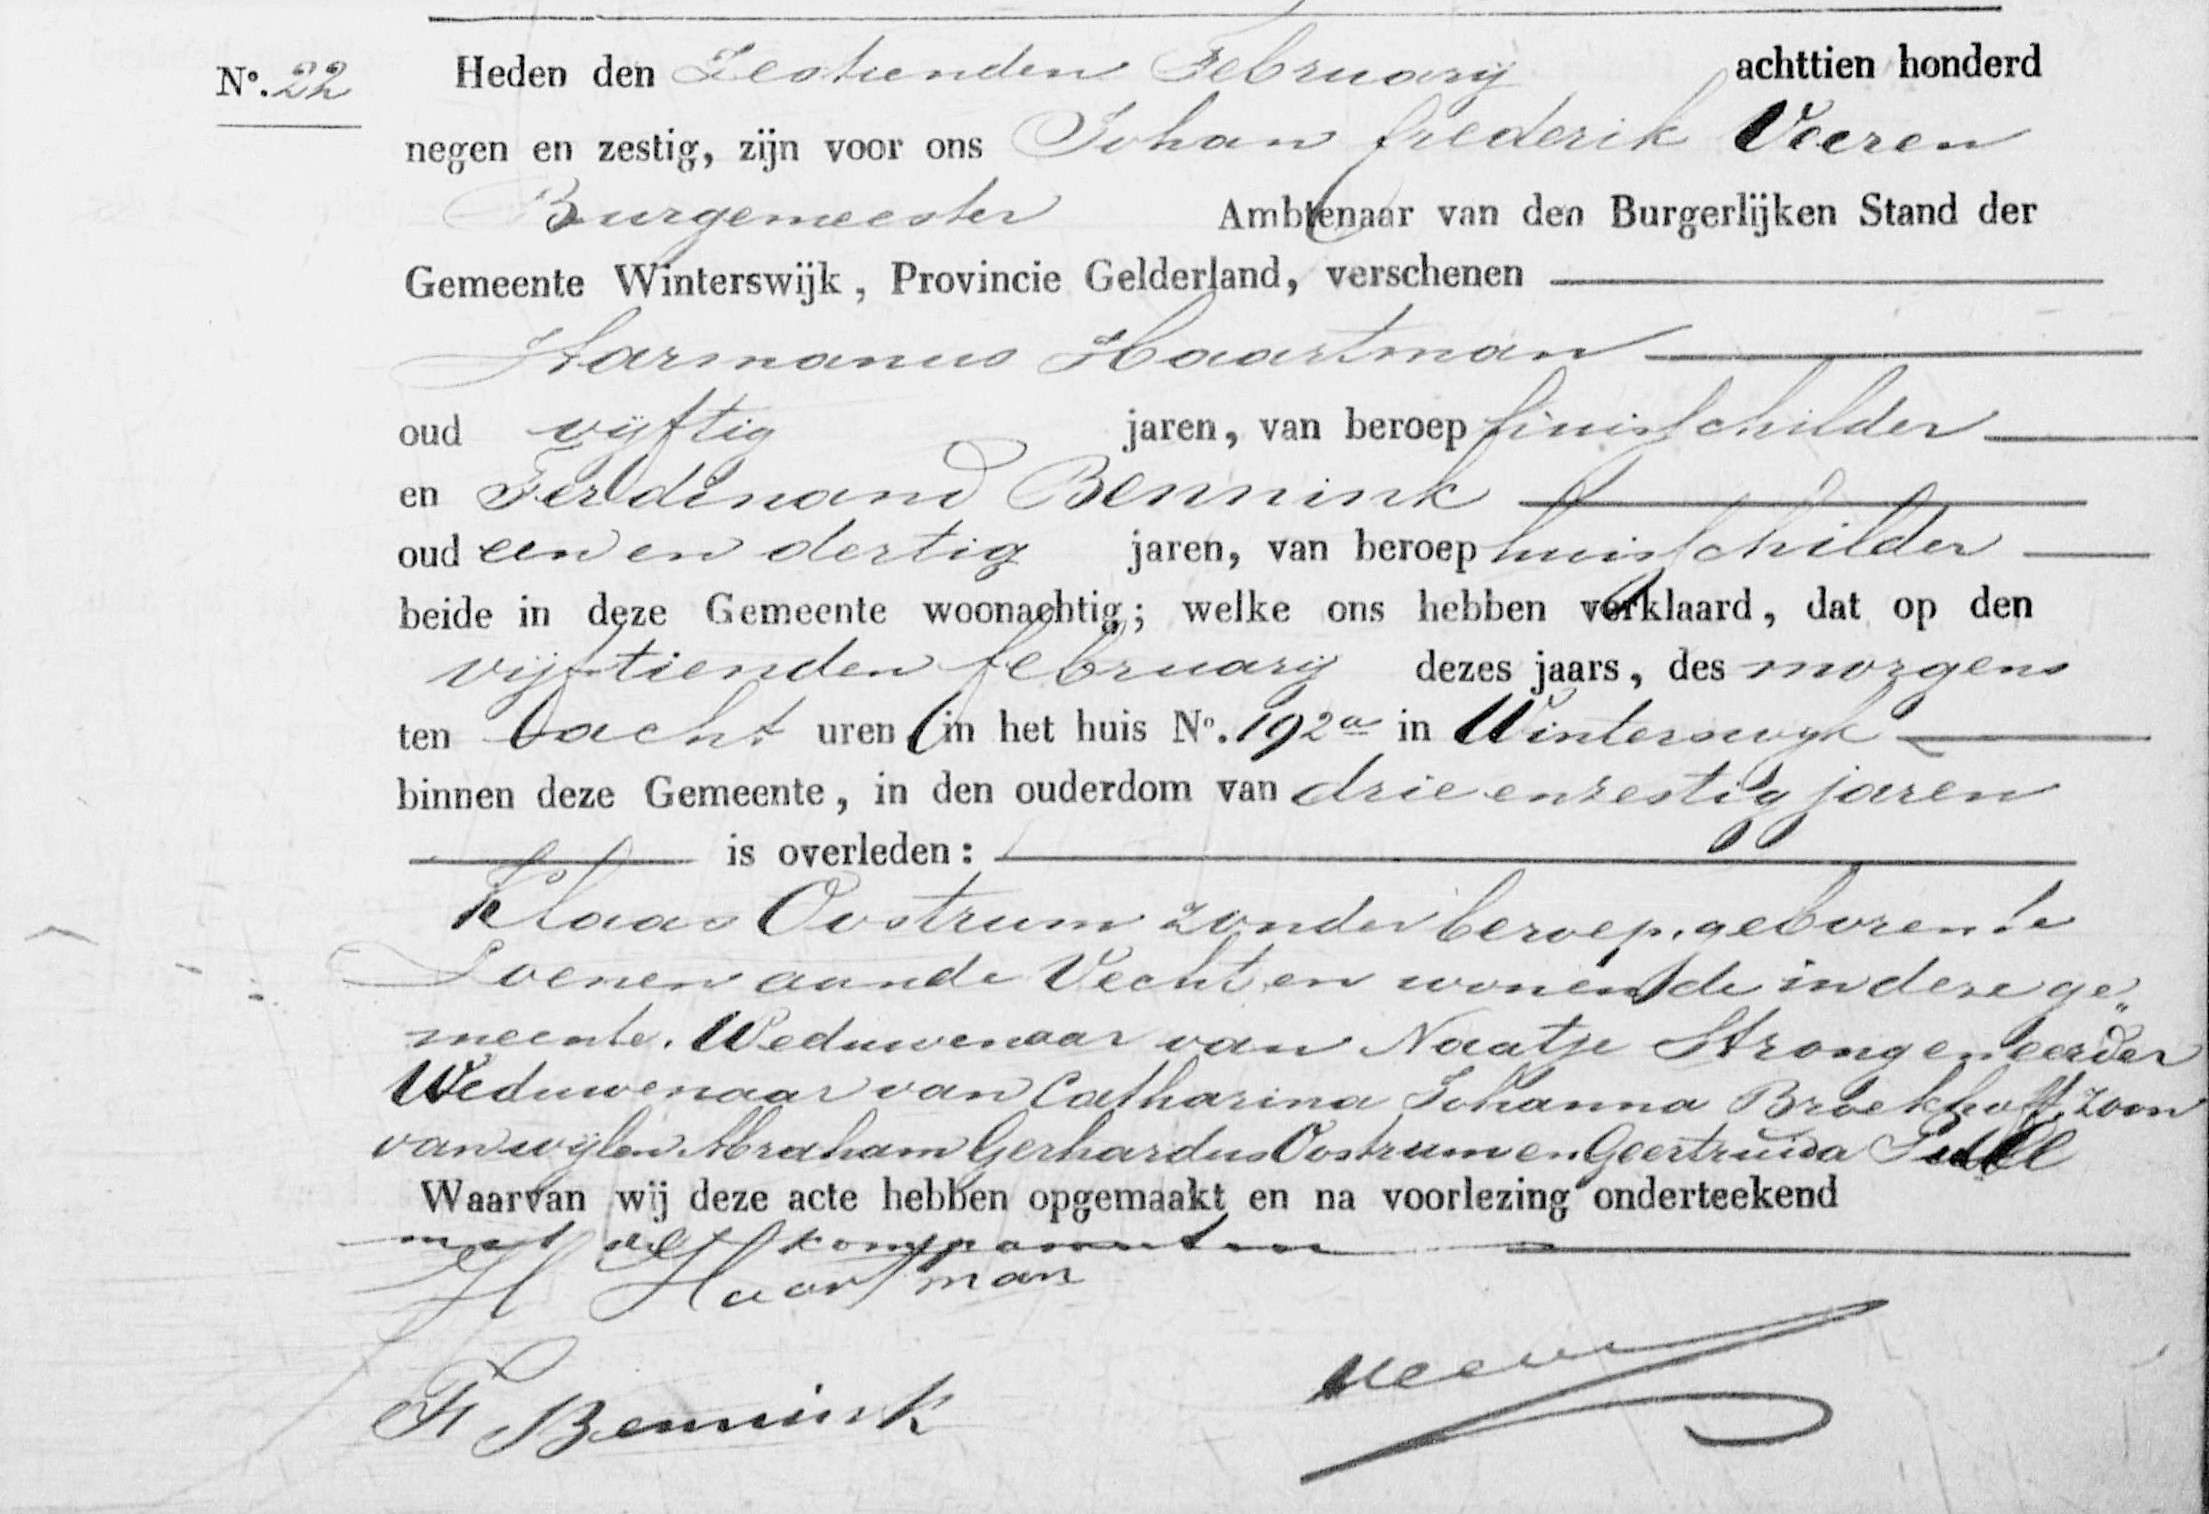 N°. 22 Heden den Zestienden February achttien honderd
negen en zestig, zijn voor ons Johan frederik Veeren
Burgemeester Ambtenaar van den Burgerlijken Stand der
Gemeente Winterswijk, Provincie Gelderland, verschenen
Harmanus Haartman
oud vijftig jaren, van beroep huisschilder
en Ferdinand Bennink
oud een en dertig jaren, van beroep huisschilder
beide in deze Gemeente woonachtig; welke ons hebben verklaard, dat op den
vijftienden february dezes jaars, des morgens
ten acht uren in het huis N°. 192a in Winterswyk
binnen deze Gemeente, in den ouderdom van drie en zestig jaren
is overleden:
Klaas Oostrum zonder beroep, geboren te
Loenen aan de Vecht en wonende in deze ge„
meente. Weduwenaar van Naatje Strong en eerder
Weduwenaar van Catharina Johanna Broekhoff, zoon
van wylen Abraham Gerhardus Oostrum en Geertruida
Waarvan wij deze acte hebben opgemaakt en na voorlezing onderteekend
met de komparanten
H Haartman
F Bennink